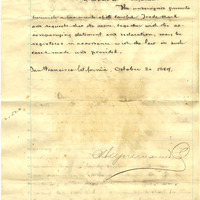 The undersigned presents
herewith a facsimile of its lawful Trade Mark
and requests that the same, together with the ac-
companying statement and declaration, may be
registered in accordance with the law in such
cases made and provided.
San Francisco, California, October 30, 1889.